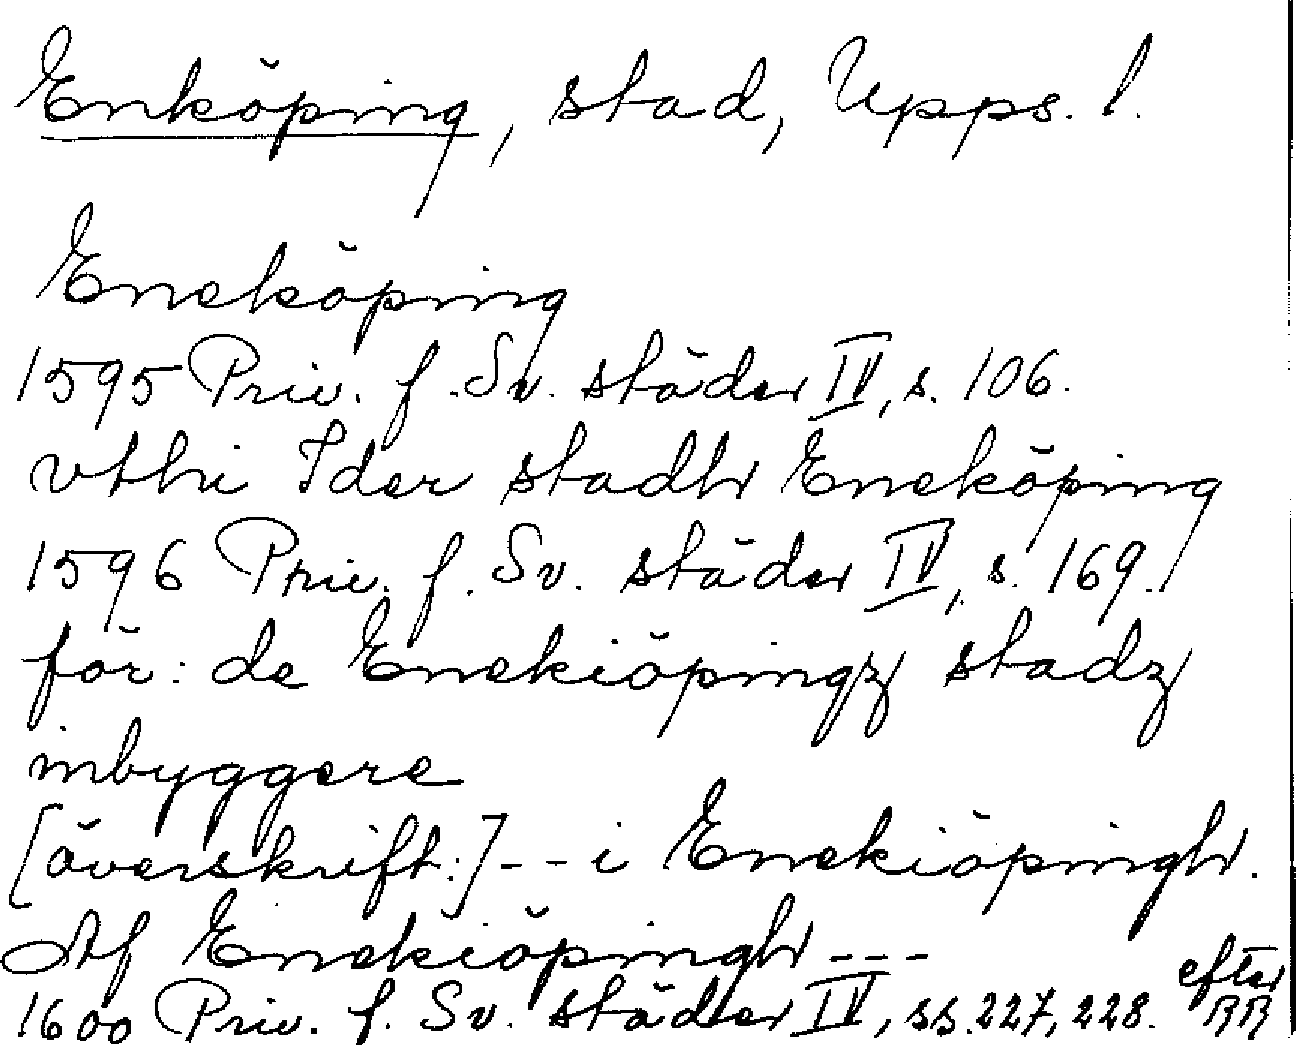 Enköping, stad, Upps. l.
Eneköping
1595 Priv. f. Sv. städer IV, s. 106.
vthi Ider stadh Eneköping
1596 Priv. f. Sv. städer IV, s. 169.
för: de Enekiöpingz stadz
inbyggere
[överskrift:] -- i Enekiöpingh.
Af Enekiöpingh ---
1600 Priv. f. Sv. städer IV, ss. 227, 228. efter RR